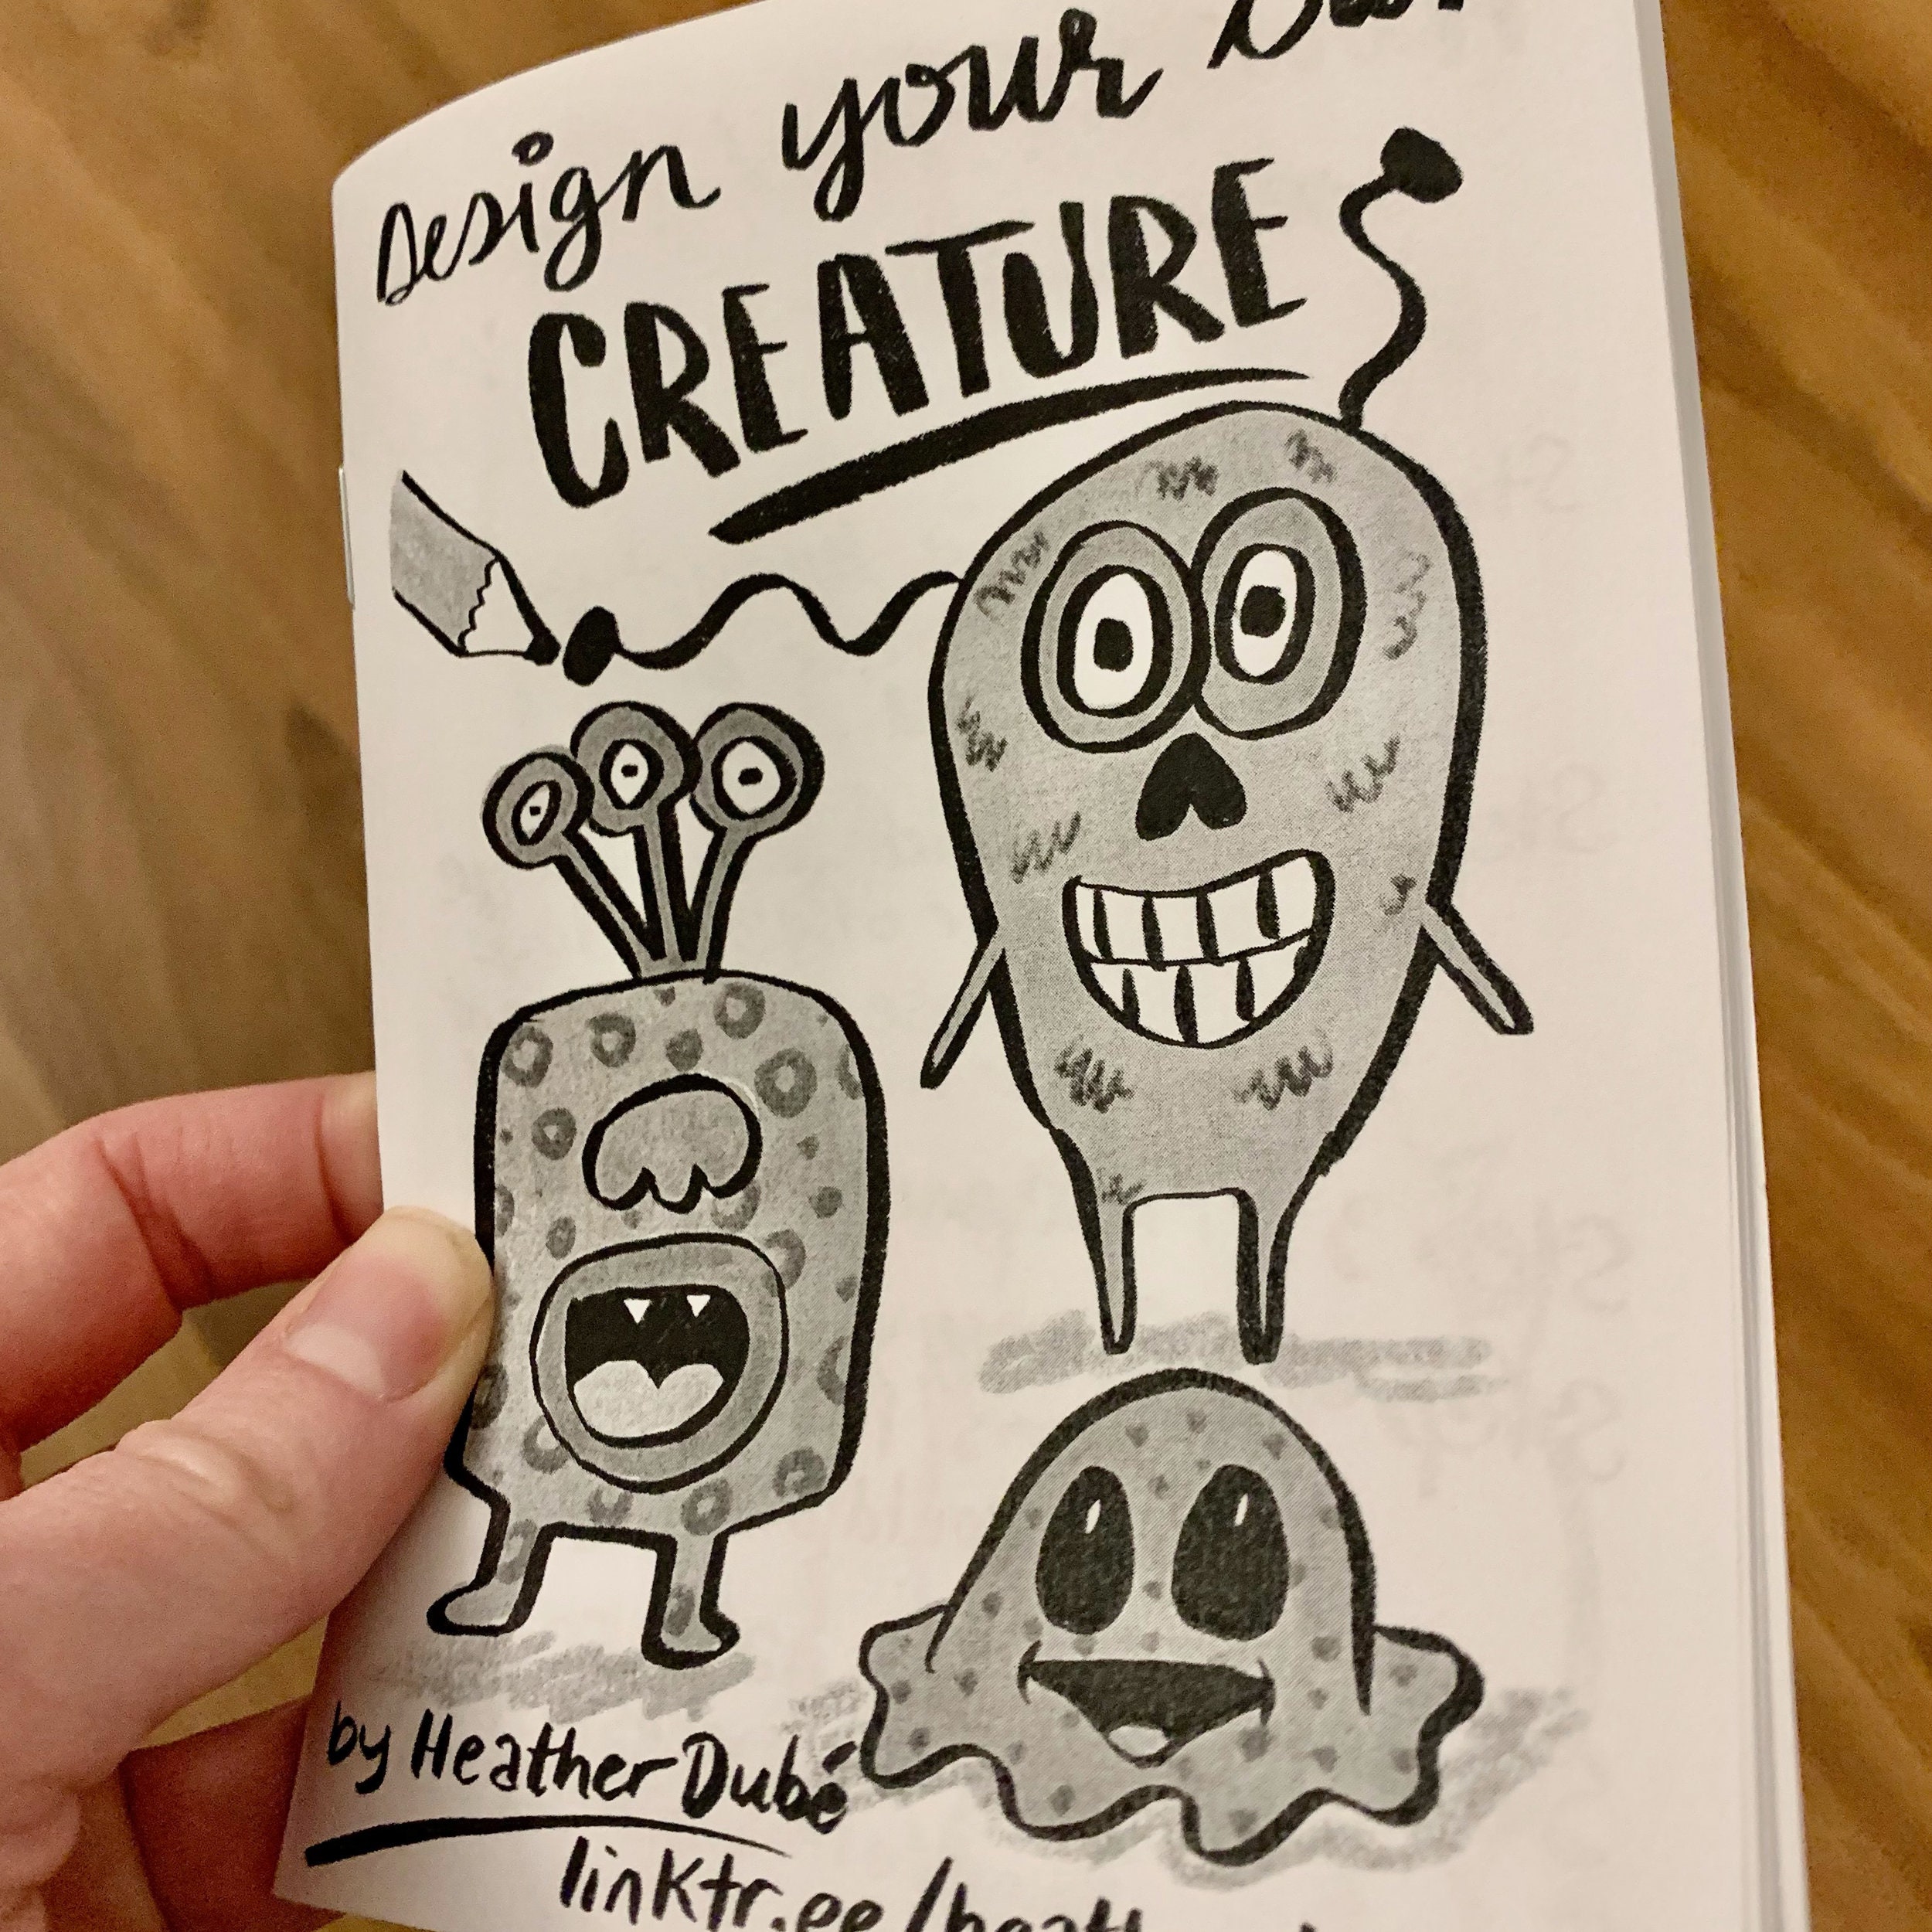 Design your
CREATURE
by Heather Dubé
linktr.ee/heath